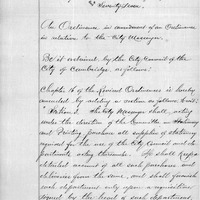 & Seventyseven.
An Ordinance in amendment of an Ordinance
in relation to the City Messenger.
Be it ordained by the City Council of the
City of Cambridge, as follows:
Chapter of the Revised Ordinances is hereby
amended by adding a section as follows, viz:
Section The City Messenger shall, acting
under the direction of the Committee on
and Printing purchase all supplies of Stationery
required for the use of the City Council and de-
partments acting thereunder. He shall keep a
detailed account of all such purchases and
deliveries from the same, and shall furnish
such departments only upon a requisition
signed by the head of such department.